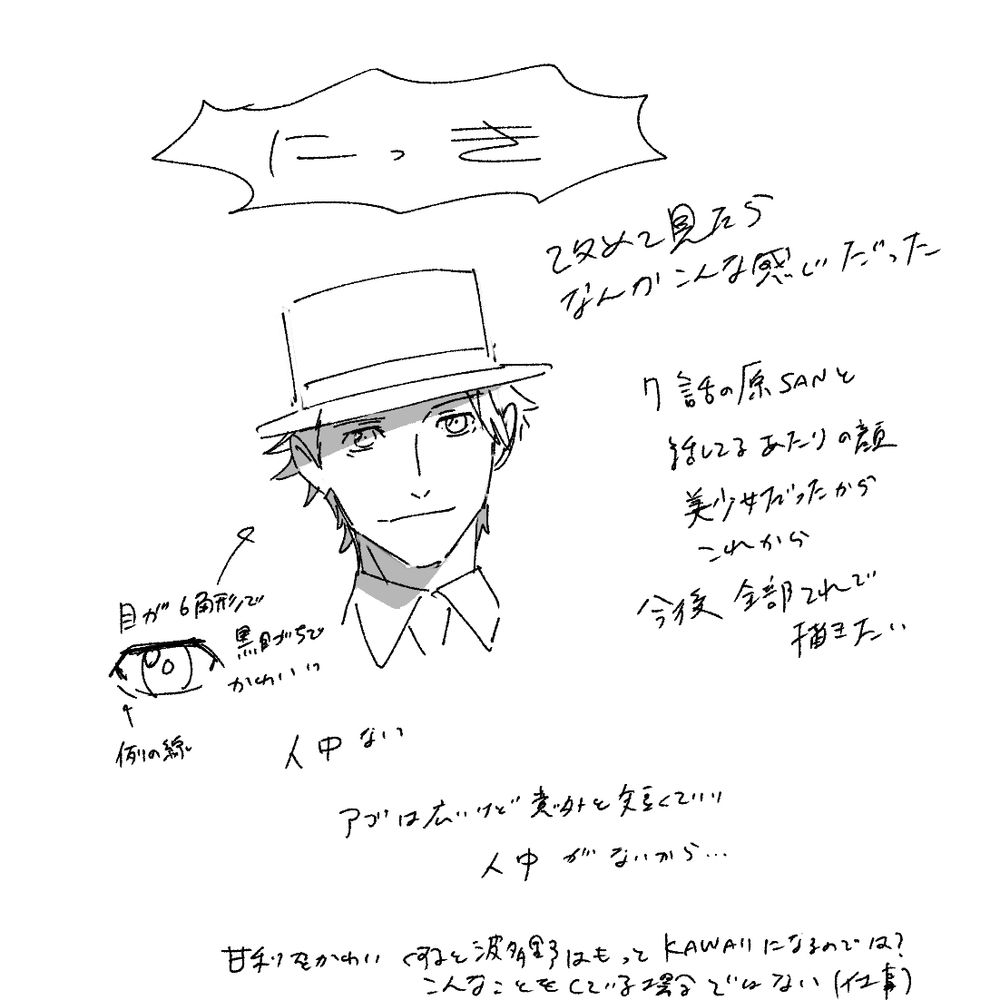 にっき
改めて見たら
なんかこんな感じだった
7話の原SANと
話してるあたりの顔
美少女だったから
これから
今後全部それで
描きたい
目が6角形で
黒目がちで
かわいい
例の線
人中ない
アゴは広いけど意外と短くていい
人中がないから…
甘利をかわいくすると波多野はもっとKAWAIIになるのでは?
こんなことをしている場合ではない(仕事)